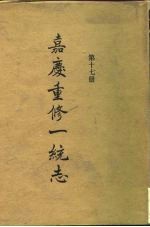 第十七册
嘉慶重修一統志